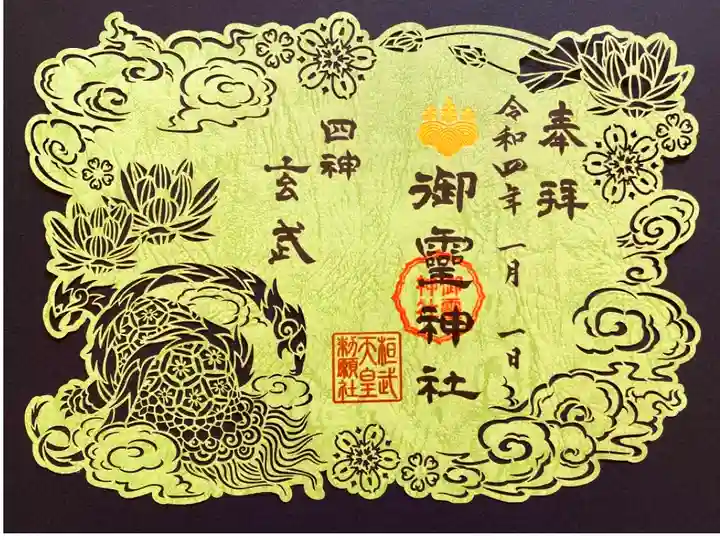 奉拝
令和四年 一月 一日
御靈神社
四神
玄武
桓武
天皇
勅願社